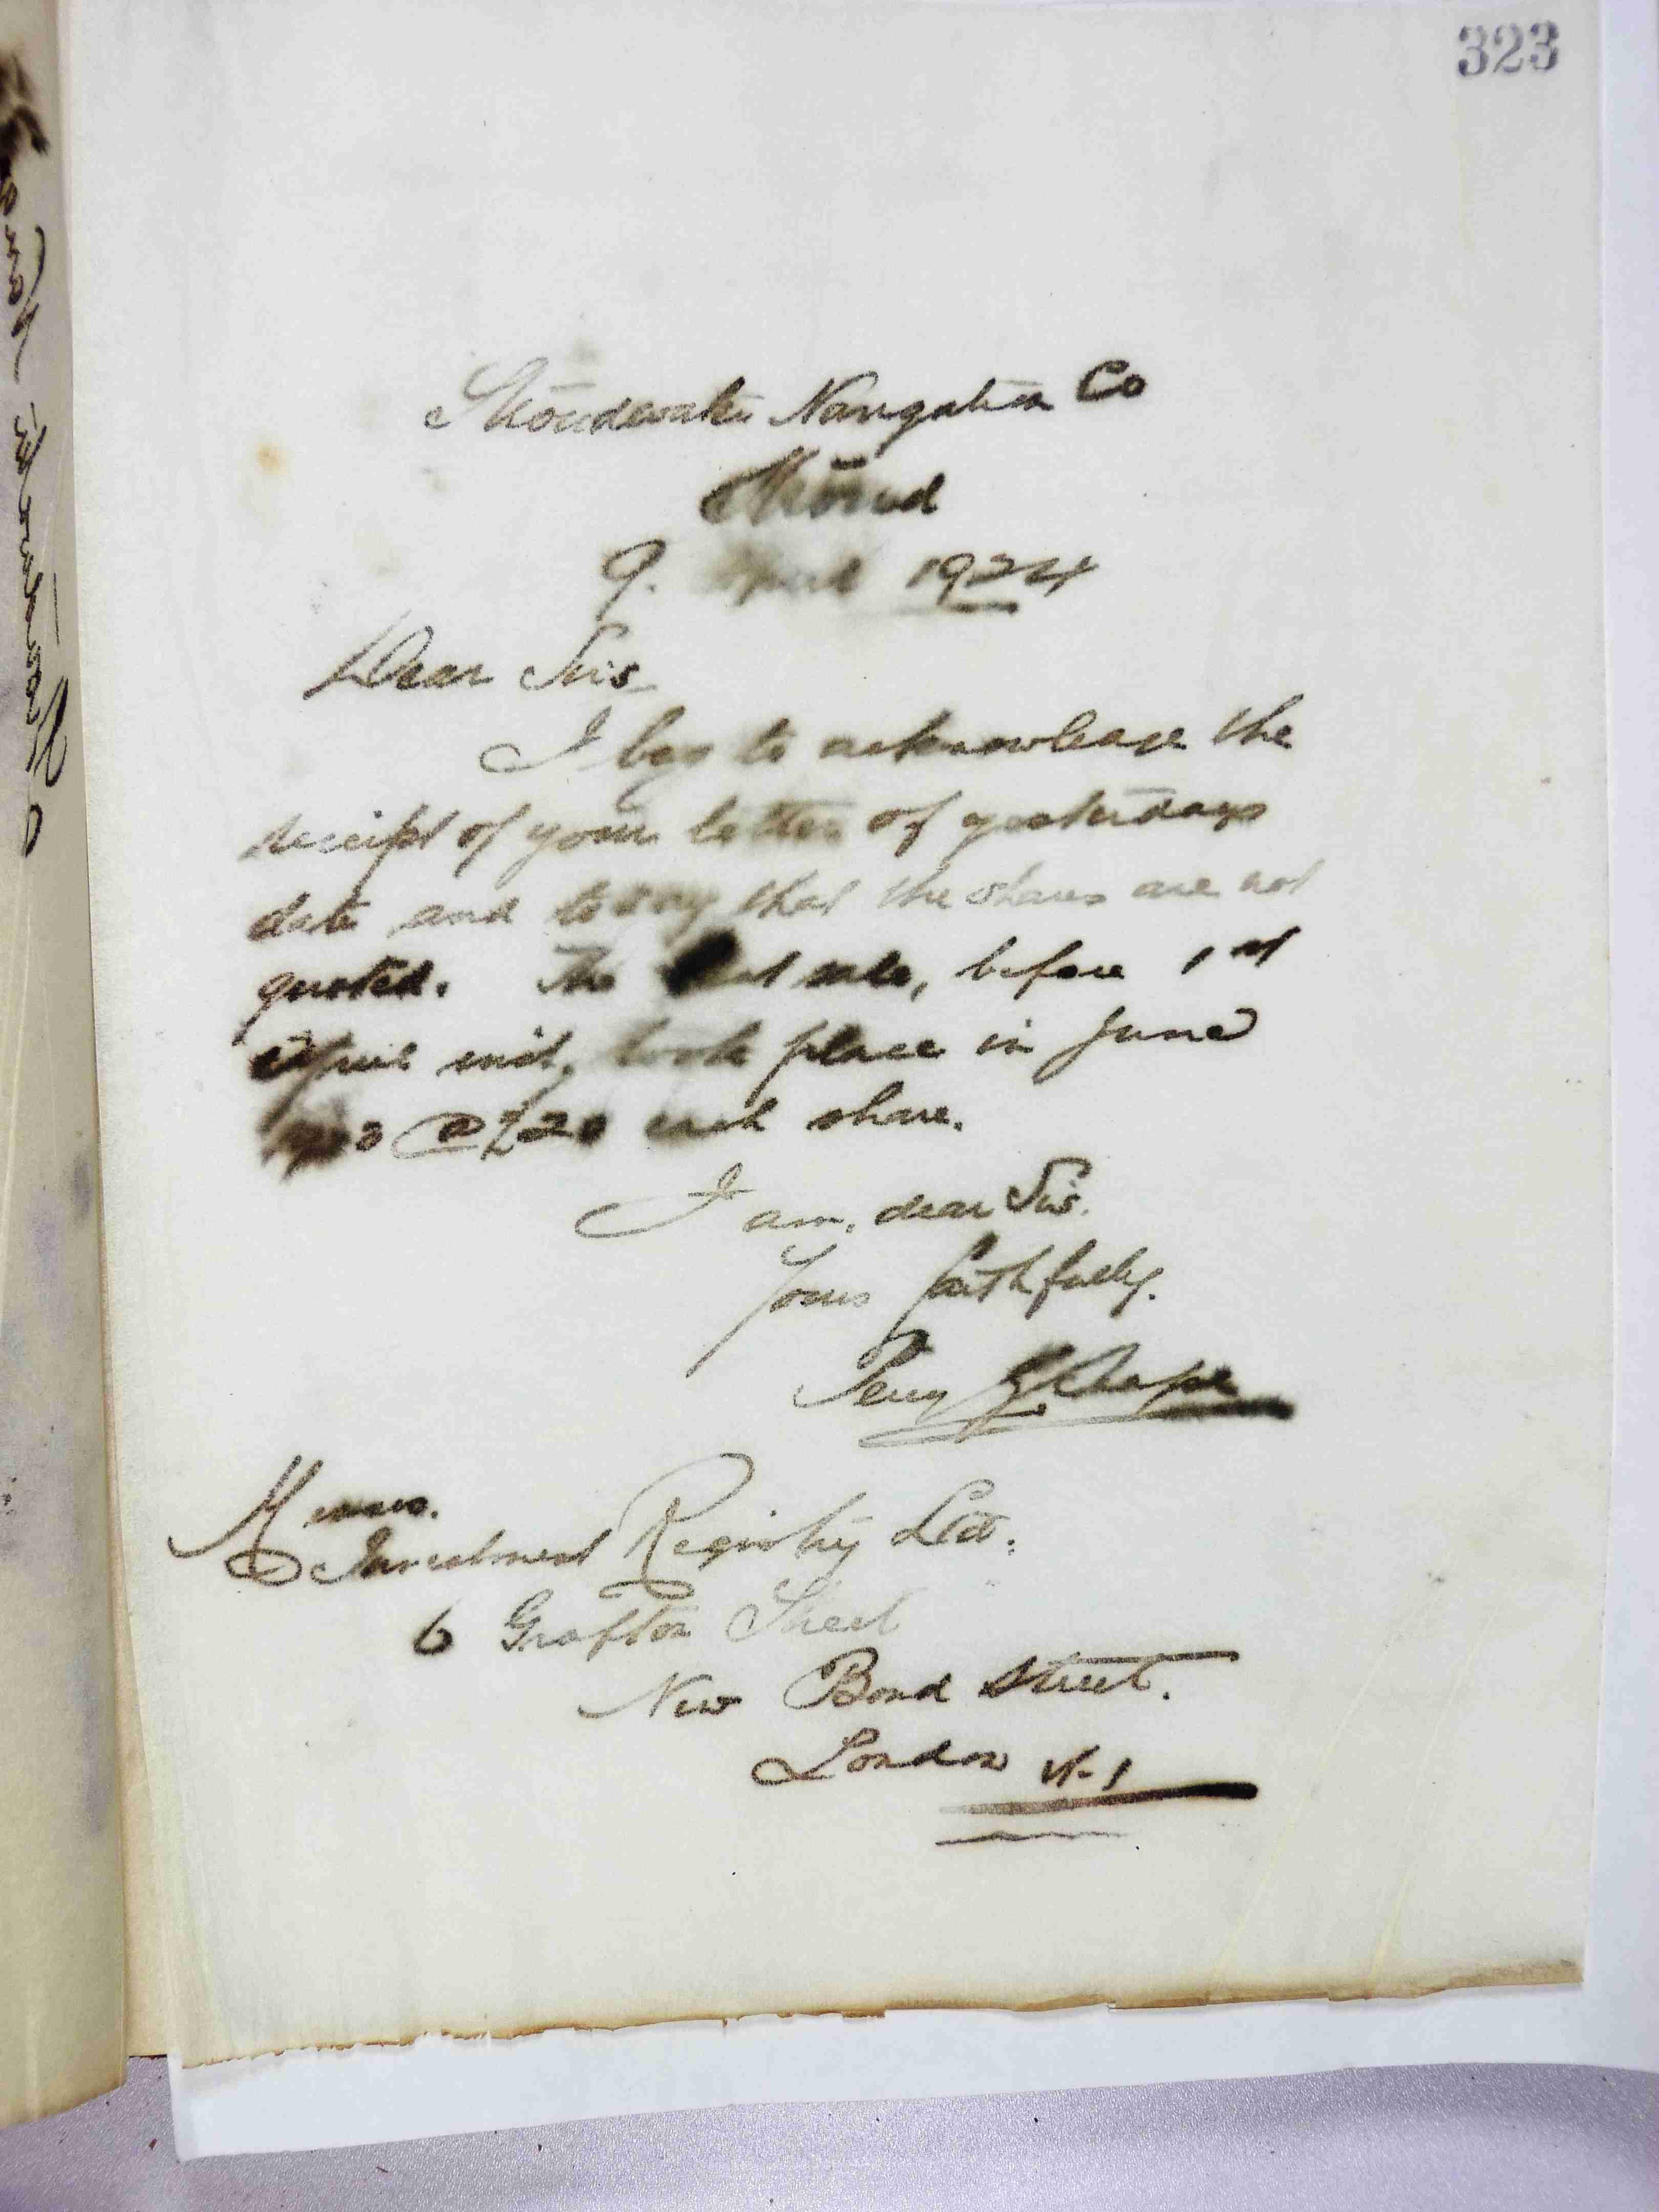 323
Stroudwater Navigation Co
Stroud
9. April 1924
Dear Sirs
I beg to acknowledge the
receipt of your letter of yesterdays
date and to say that the shares are not
quoted. The last sale, before 1st
April inst, took place in June
@ £20 each share.
I am, dear Sirs.
Yours faithfully.
Percy G Snape
Messrs.
Investment Registry Ltd.
6 Grafton Street
New Bond Street.
London W.1